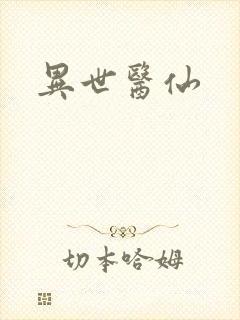 異世醫仙
切本哈姆